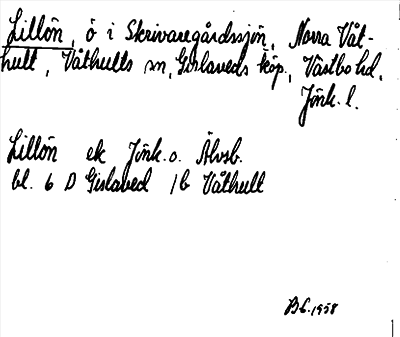 Lillön, ö i Skrivaregårdssjön, Norra Våt-
hult, Våthults sn, Gislaveds köp., Västbo hd.
Jönk. l.
Lillön ek Jönk. o. Älvsb.
bl. 6 D Gislaved 1b Våthult
BL. 1958